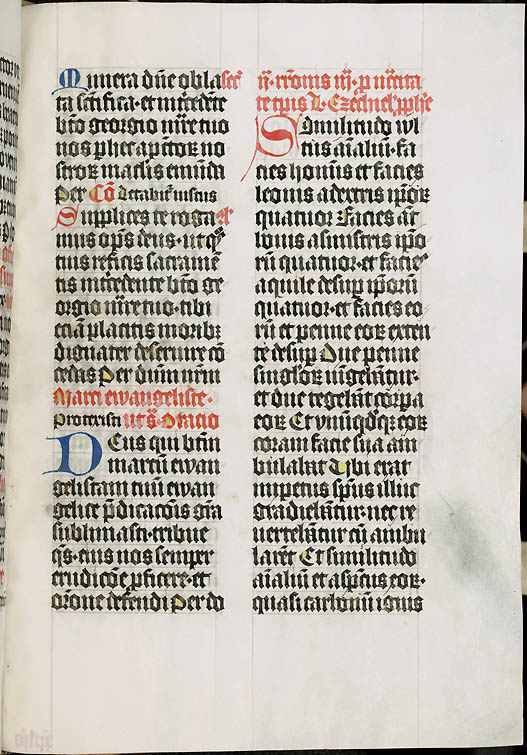 Munera dñe obla
ta sctifica·et intcedẽte
bto georgio mr̃e tuo
nos p hec a pctoꝝ no
stroꝝ maclis emũda
Per Cõ Letabit iustus
Supplices te roga
mus ops deus·ut qs
tuis reficis sacramẽ
tis intcedente bto ge
orgio mr̃e tuo·tibi
eciã placitis moribꝫ
dignater deseruire cõ
cedas Per dnm nrm
Marci ewangeliste·
Protexisti ut s Oracio
DEus qui btm
marcũ ewan
gelistam tuũ ewan
gelice p̃dicacõis grã
sublimasti·tribue
qs·eius nos semper
erudicõe p̃ficere·et
orõne defendi Per do
te tpis L Ezechiel pphe
Similitudo vl
tus aĩaliũ·fa
cies hoĩnis et facies
leonis a dextris ip̃oꝝ
quatuor Facies aũt
bouis a sinistris ip̃o
rũ quatuor·et facies
aquile desup ip̃orũ
quatuor·et facies eo
rũ et penne eoꝝ exten
te desup Due penne
singloꝝ iũgebãtur·
et due tegebãt corpa
eoꝝ Et vnũqdqꝫ eoꝝ
coram facie sua am
bulabat Vbi erat
impetus spũs illuc
gradiebãtur·nec re
uertebãtur cũ ambu
larẽt Et similitudo
aĩaliũ et aspctus eoꝝ·
quasi carbonũ ignis